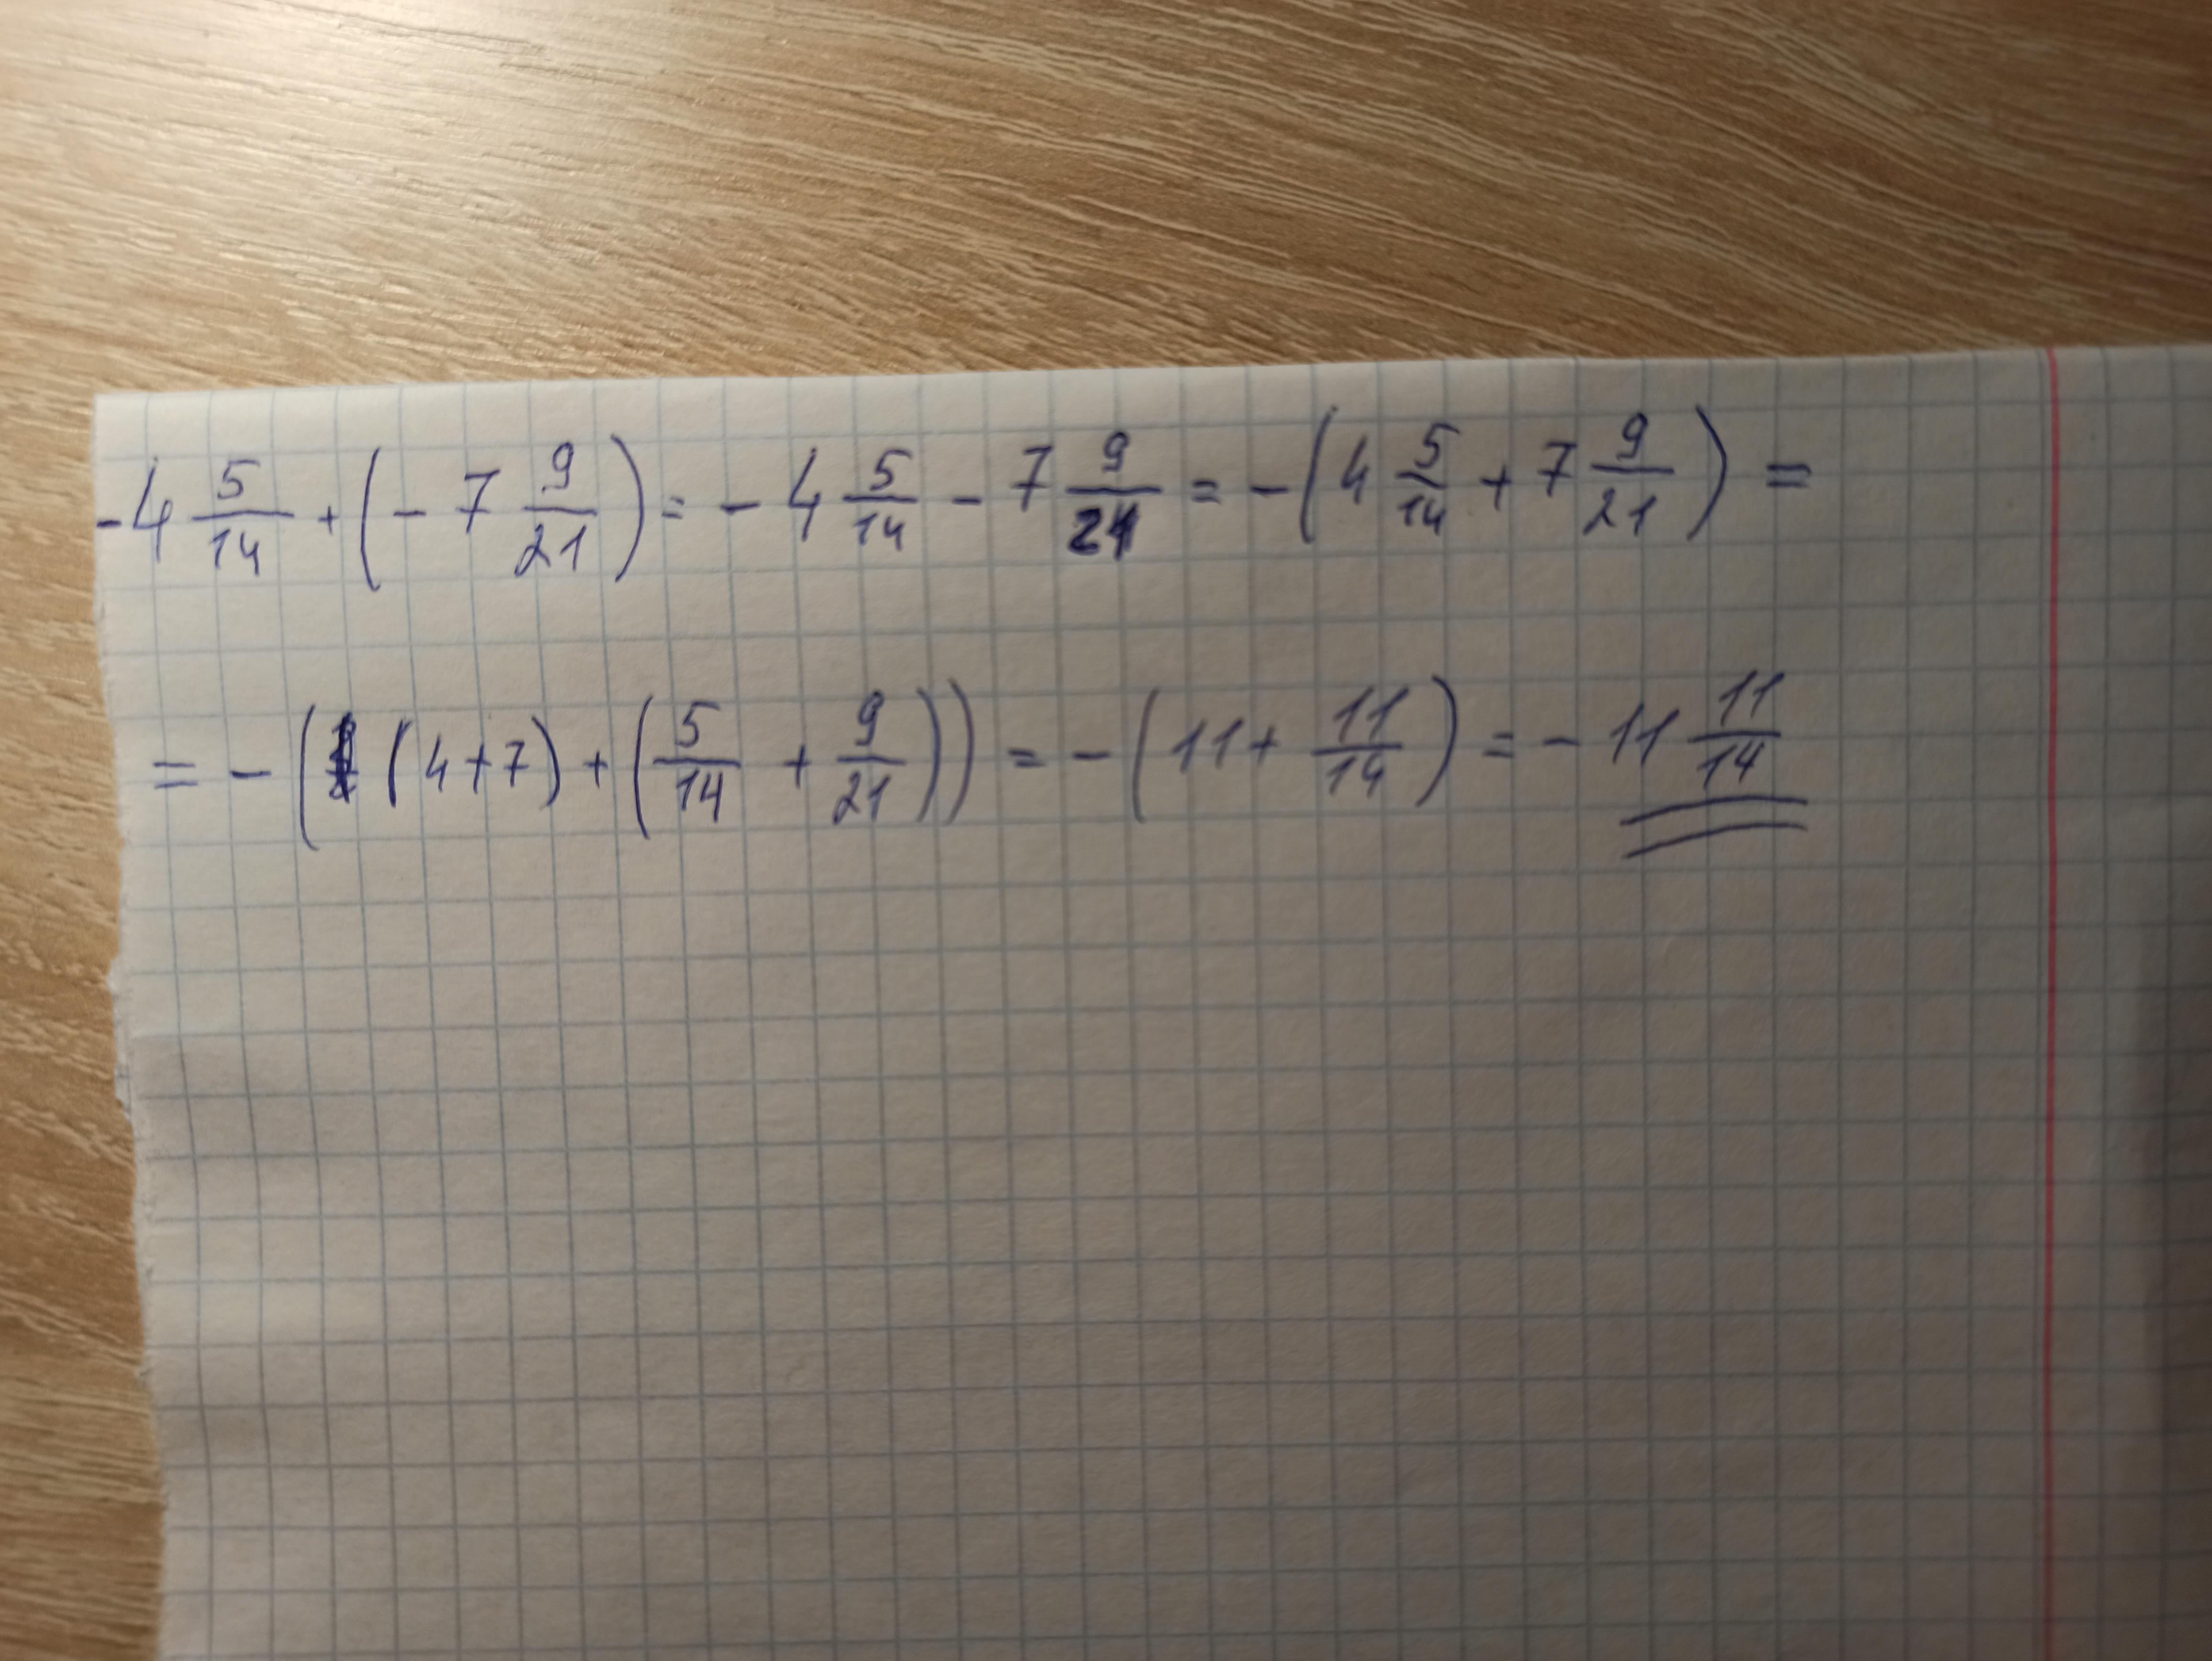 -4 5/14 + (- 7 9/21) = - 4 5/14 - 7 9/21 = -(4 5/14 + 7 9/21) =
= - ((4+7) + (5/14 + 9/21)) = - (11 + 11/14) = - 11 11/14